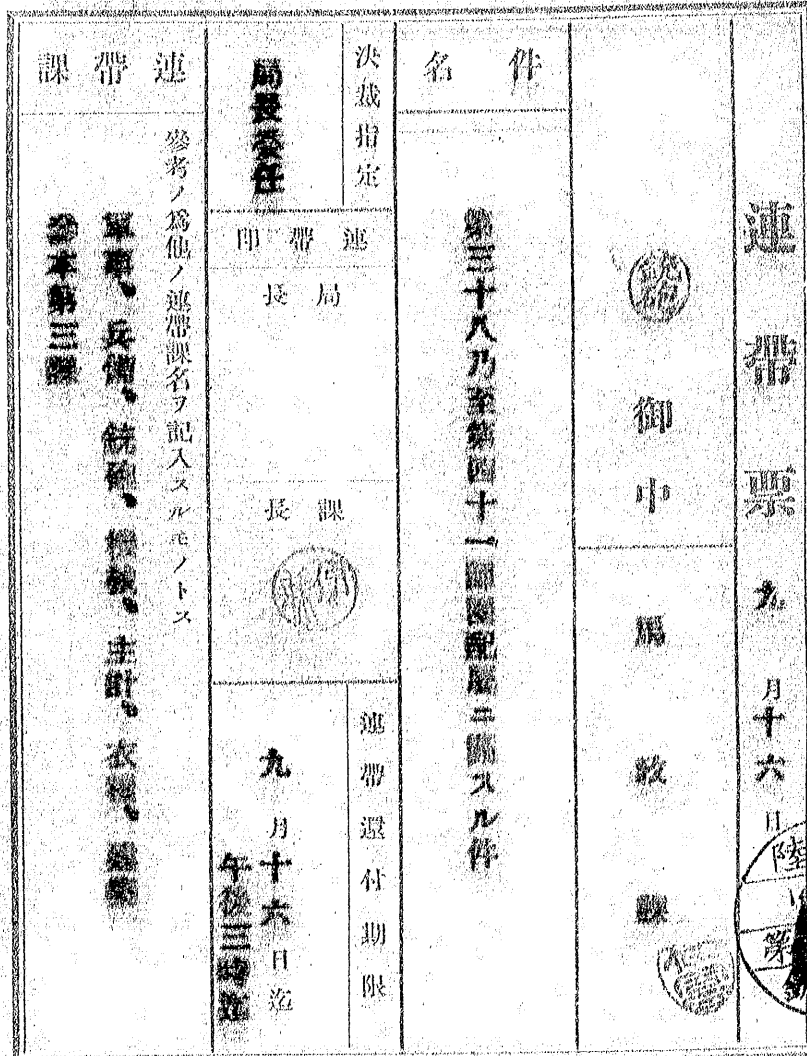 連帶票 九月十六日
銃砲 御中
馬政課
件名
第三十八乃至第四十一師團配屬ニ關スル件
決裁指定
局長委任
連帶印
局長
課長
連帶還付期限
九月十六日迄
午後三時迄
連帶課
參考ノ爲他ノ連帶課名ヲ記入スルモノトス
軍事、兵備、銃砲、機械、主計、衣糧、
參本第三課